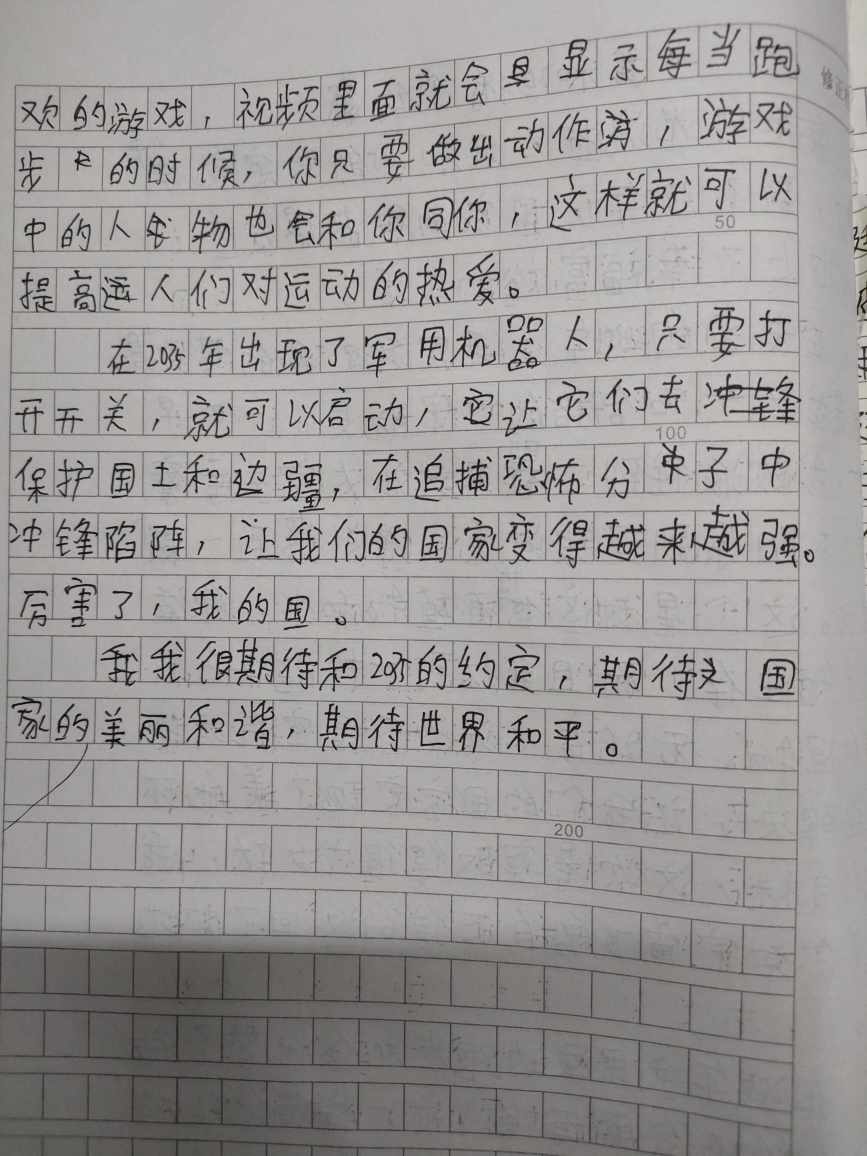 欢的游戏，视频里面就会显示每当跑
步的时候，你只要做出动作，游戏
中的人物也会和你同你，这样就可以
50
提高人们对运动的热爱。
在2035年出现了军用机器人，只要打
开开关，就可以启动，让它们去冲锋
100
保护国土和边疆，在追捕恐怖分子中
冲锋陷阵，让我们的国家变得越来越强。
厉害了，我的国。
我我很期待和2035的约定，期待国
家的美丽和谐，期待世界和平。
200